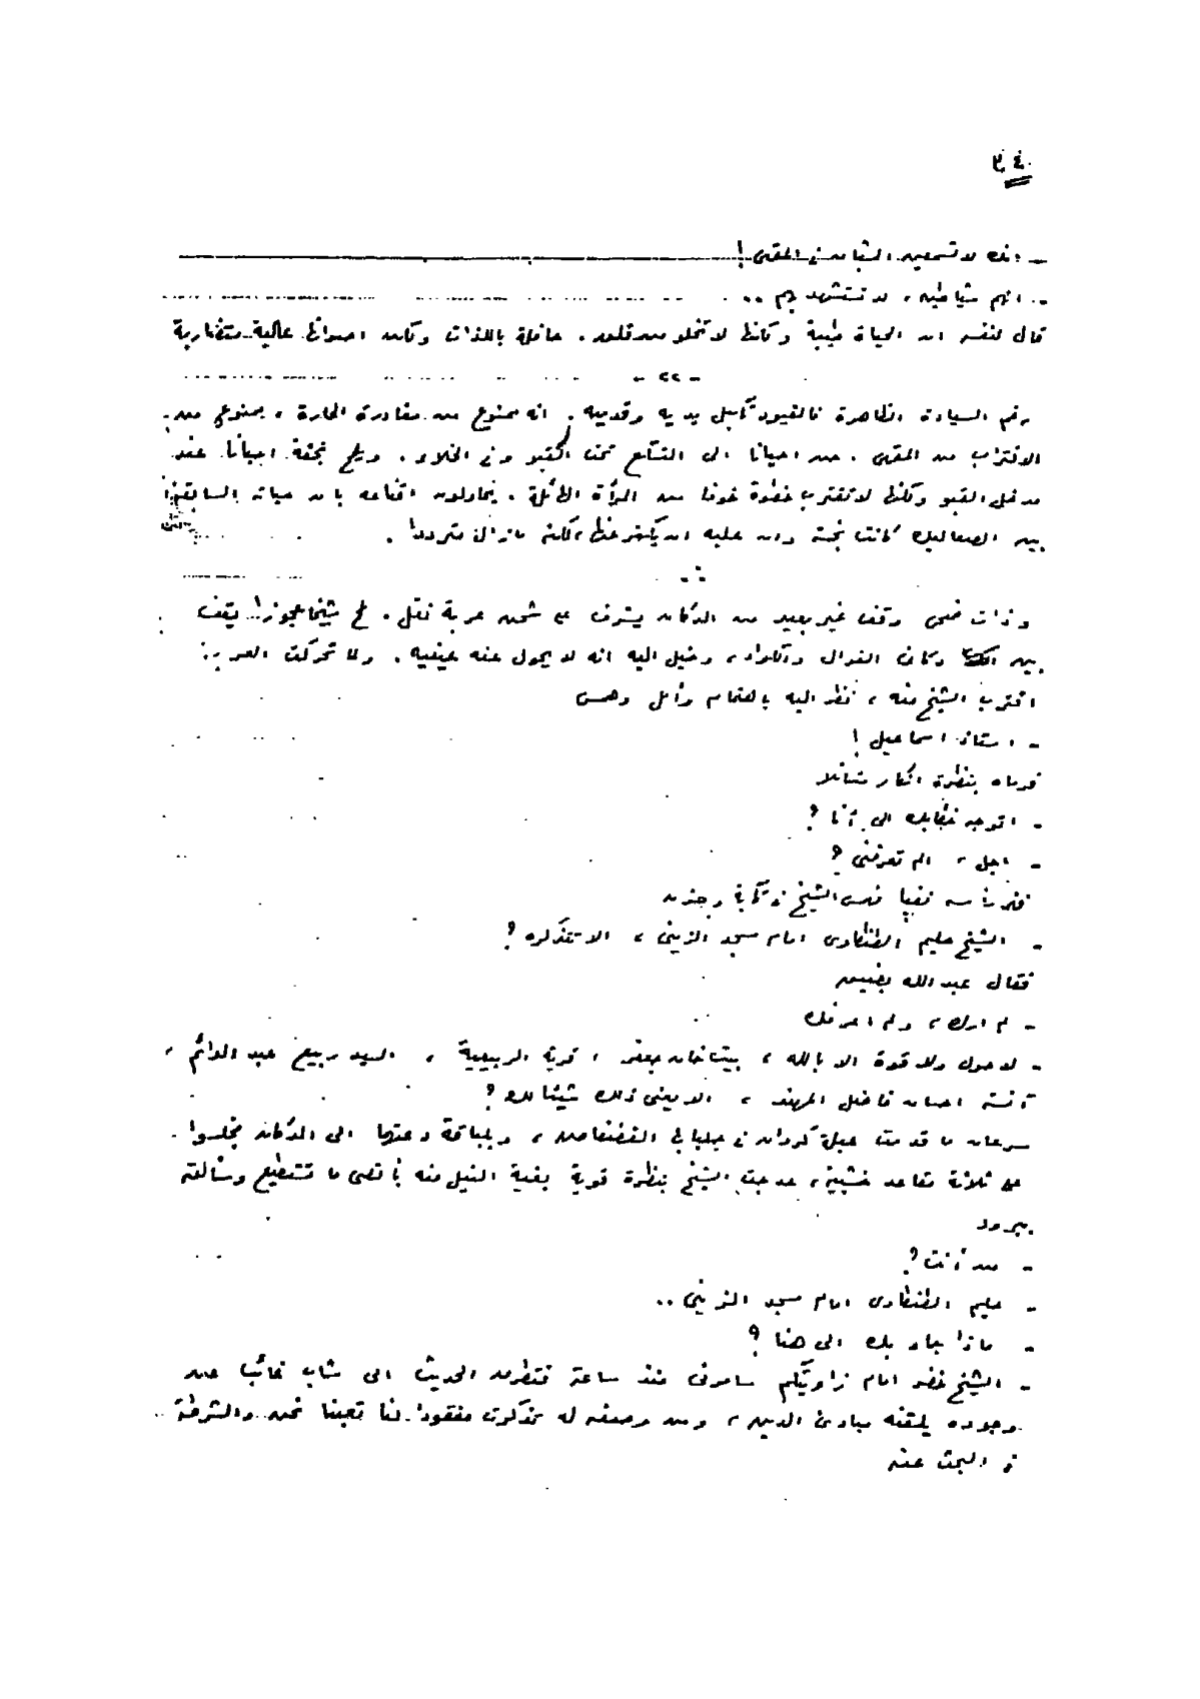 ٢٤٠
- انك لا تسمعين الشبان فى المقهى !
- انهم شياطين ، لا تستشهد بهم ..
قال لنفسه ان الحياة طيبة وكانها لا تخلو من قلق . حافلة باللذات وكأن اصواتها عالية متضاربة
- ٢٢ -
رغم السيادة الظاهرة فالقيود تكبل يديه وقدميه . انه ممنوع من مغادرة الحارة ، ممنوع من
الاقتراب من المقهى . حن احيانا الى التسكع تحت القبو وفى الخلاء . ويلمح نجفة احيانا عند
مدخل القبو ولكنها لا تقترب خطوة خوفا من المرأة الهائلة . يحاولون اقناعه بان حياته السابقة
بين الصعاليك كانت نجسة وان عليه ان يكفر عنها ولكنه مازال مترددا .
وذات ضحى وقف غير بعيد من الدكان يشرف على شحن عربة نقل . لمح شيخا عجوزا يقف
بين دكان الفوال والكواء ، وخيل اليه انه لا يحول عنه عينيه . ولما تحركت العربة
اقترب الشيخ منه ، نظر اليه باهتمام وأمل وهمس
- استاذ اسماعيل !
فرماه بنظرة انكار متسائلا
- اتوجه خطابك الى أنا ؟
- اجل ، الم تعرفنى ؟
فهز رأسه نفيا فهمس الشيخ فى كآبة وحزن
- الشيخ حليم الطنطاوى امام مسجد الزينى ، الا تتذكره ؟
فقال عبد الله بضيق
- لم ارك ، ولم اعرفك
- لا حول ولا قوة الا بالله ، بيت خان جعفر ، قرية الربيعية ، السيد ربيع عبد الدائم ،
آنسة احسان فاضل المهندى ، الا يعنى ذلك شيئا لك ؟
سرعان ما قدمت عبلة كردان فى جلبابها الفضفاض ، وبلباقة دعتهما الى الدكان فجلسوا
على ثلاثة مقاعد خشبية ، حدجت الشيخ بنظرة قوية بغية النيل منه بأقصى ما تستطيع وسألته
ببرود
- من أنت ؟
- حليم الطنطاوى امام مسجد الزينى ..
- ماذا جاء بك الى هنا ؟
- الشيخ خضر امام زاويتكم سامرنى منذ ساعة فتطرق الحديث الى شاب غائب عن
وجوده يلقنه مبادئ الدين ، ومن وصفه له تذكرت مفقودا لنا تعبنا نحن والشرطة
فى البحث عنه